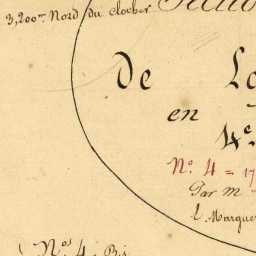 3,200m Nord du clocher
De
en
4e
No. 4 = 17
Par m
l. Marque
Nos. 4 Bis